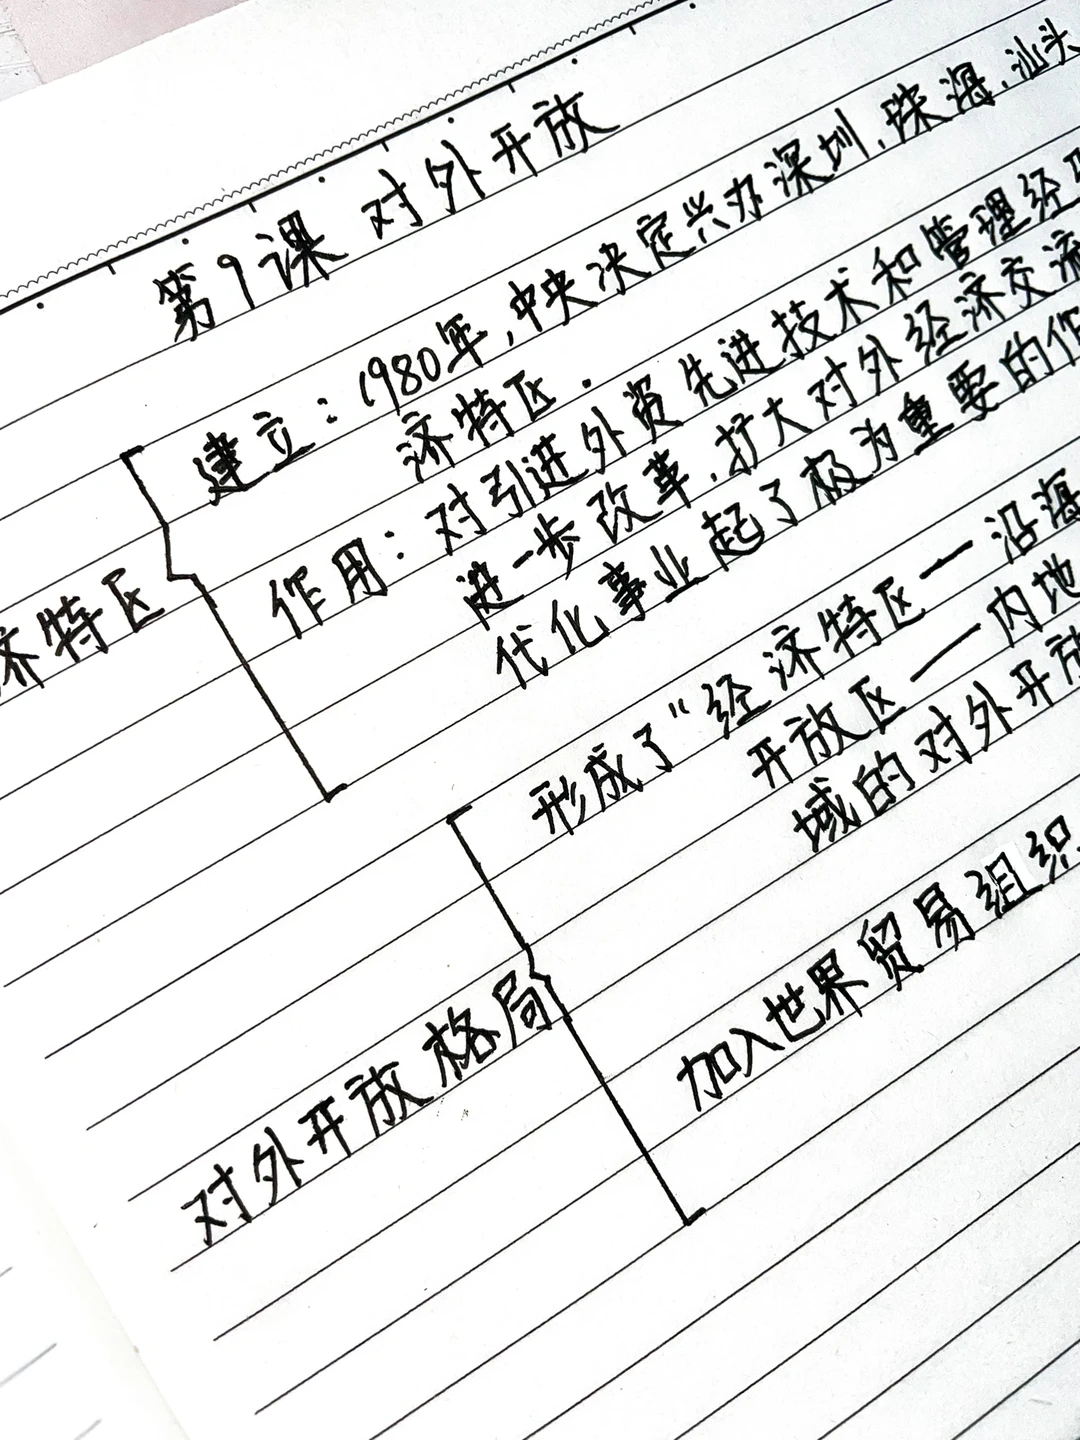 第9课 对外开放
建立：1980年，中央决定兴办深圳.珠海.汕头
济特区.
作用：对引进外资先进技术和管理经
进一步改革.扩大对外经济交流
代化事业起了极为重要的作
济特区
形成了“经济特区—沿海
开放区—内地
域的对外开放
对外开放格局
加入世界贸易组织